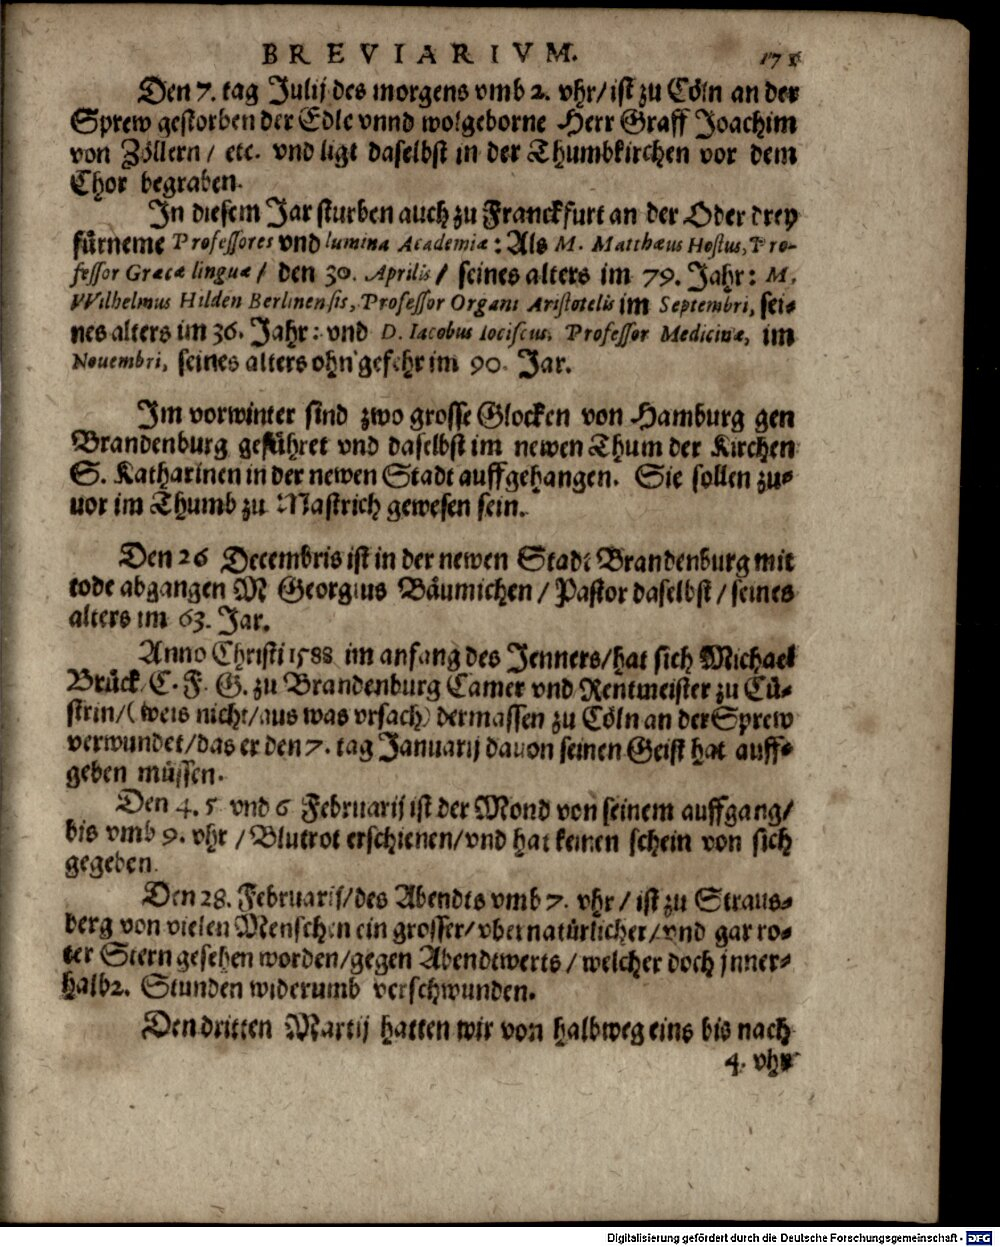 BREVIARIVM. 171
Den 7. tag Julij des morgens vmb 2. vhr/ ist zu Cöln an der
Sprew gestorben der Edle vnnd wolgeborne Herr Graff Joachim
von Zöllern/ etc. vnd ligt daselbst in der Thumbkirchen vor dem
Chor begraben.
In diesem Jar sturben auch zu Franckfurt an der Oder drey
fürneme Professores vnd lumina Academiæ: Als M. Matthæus Hostus, Pro-
fessor Græcæ linguæ/ den 30. Aprilis/ seines alters im 79. Jahr: M.
VVilhelmus Hilden Berlinensis, Professor Organi Aristotelis im Septembri, sei-
nes alters im 36. Jahr: vnd D. Iacobus Iociscus, Professor Medicinæ, im
Nouembri, seines alters ohn gefehr im 90. Jar.
Im vorwinter sind zwo grosse Glocken von Hamburg gen
Brandenburg geführet vnd daselbst im newen Thum der Kirchen
S. Katharinen in der newen Stadt auffgehangen. Sie sollen zu-
uor im Thumb zu Mastrich gewesen sein.
Den 26 Decembris ist in der newen Stadt Brandenburg mit
tode abgangen M Georgius Bäumichen/ Pastor daselbst/ seines
alters im 63. Jar.
Anno Christi 1588 im anfang des Jenners/ hat sich Michael
Brück/ C. F. G. zu Brandenburg Camer vnd Rentmeister zu Cü-
strin/ (weis nicht/ aus was vrsach) dermassen zu Cöln an der Sprew
verwundet/ das er den 7. tag Januarij dauon seinen Geist hat auff-
geben müssen.
Den 4. 5 vnd 6 Februarij ist der Mond von seinem auffgang/
bis vmb 9. vhr/ Blutrot erschienen/ vnd hat keinen schein von sich
gegeben.
Den 28. Februarij/ des Abendts vmb 7. vhr/ ist zu Straus-
berg von vielen Menschen ein grosser/ vbernatürlicher/ vnd gar ro-
ter Stern gesehen worden/ gegen Abendtwerts/ welcher doch jnner-
halb 2. Stunden widerumb verschwunden.
Den dritten Martij hatten wir von halbweg eins bis nach
4. vhr
Digitalisierung gefördert durch die Deutsche Forschungsgemeinschaft - DFG